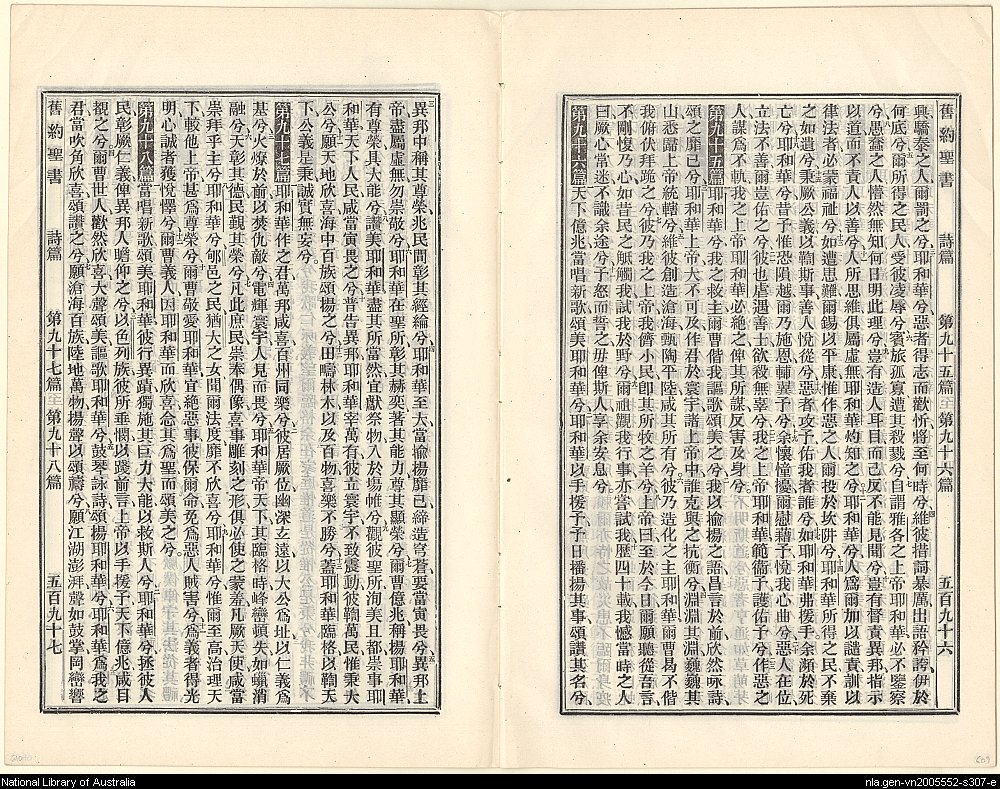 舊約聖書 詩篇 第九十五篇至第九十六篇 五百九十六
興驕泰之人爾罰之兮耶和華兮惡者得志而歡忻將至何時兮維彼措詞暴厲出語矜誇伊於
何底兮爾所得之民人受彼凌辱兮賓旅孤寡遭其殺戮兮自謂雅各之上帝耶和華必不鑒察
兮愚蠢之人懵然無知何日明此理兮豈有造人耳目而己反不能見聞兮豈有督責異邦指示
以道而不責人以善兮人所思維俱屬虛無耶和華灼知之兮耶和華兮人爲爾加以譴責訓以
律法者必蒙福祉兮如遭患難爾錫以平康惟作惡之人爾投於坎阱兮耶和華所得之民不棄
之如遺兮秉厥公義以鞫斯事善人悅從兮惡者攻予佑我者誰兮如耶和華弗援手余瀕於死
亡兮耶和華兮昔予惟恐隕越爾乃施恩輔翼予兮余懷憧擾爾慰藉予悅我心曲兮惡人在位
立法不善爾豈佑之兮彼也虐遇善士欲殺無辜兮我之上帝耶和華範衞予護佑予兮作惡之
人謀爲不軌我之上帝耶和華必絕之俾其所謀反害及身兮
第九十五篇耶和華兮我之救主爾曹偕我謳歌頌美之兮我以揄揚之語昌言於前欣然咏詩
頌之靡已兮耶和華上帝大不可及作君於寰宇諸上帝中誰克與之抗衡兮淵淵其淵巍巍其
山悉歸上帝統轄兮維彼創造滄海甄陶平陸咸其所有兮彼乃造化之主耶和華爾曹曷不偕
我俯伏拜跪之兮彼乃我之上帝我儕小民即其所牧之羊兮上帝曰至於今日爾願聽從吾言
不剛愎乃心如昔民之觝觸我試我於野兮爾祖觀我行事亦嘗試我歷四十載我憾當時之人
曰厥心常迷不識余途兮予怒而誓之毋俾斯人享余安息兮
第九十六篇天下億兆當唱新歌頌美耶和華兮耶和華以手援予予日播揚其事頌讚其名兮
異邦中稱其尊榮兆民間彰其經綸兮耶和華至大當揄揚靡已締造穹蒼要當寅畏兮異邦上
帝盡屬虛無勿崇敬兮耶和華在聖所彰其赫奕著其能力尊其顯榮兮爾曹億兆稱揚耶和華
有尊榮具大能兮讚美耶和華盡其所當然宜獻祭物入於場帷兮觀彼聖所洵美且都崇事耶
和華天下人民咸當寅畏之兮普告異邦耶和華宰萬有彼立寰宇不致震動彼鞫萬民惟秉大
公兮願天地欣喜海中百族頌揚之兮田疇林木以及百物喜樂不勝兮蓋耶和華臨格以鞫天
下公義是秉誠實無妄兮
第九十七篇耶和華作之君萬邦咸喜百州同樂兮彼居厥位幽深玄遠以大公爲址以仁義爲
基兮火燎於前以焚仇敵兮電輝寰宇人見而畏兮耶和華帝天下其臨格時峰巒頓失如蠟消
融兮天彰其德民觀其榮兮凡此庶民崇奉偶像喜事雕刻之形俱必使之蒙羞凡厥天使咸當
崇拜乎主兮耶和華兮郇邑之民猶大之女聞爾法度靡不欣喜兮耶和華兮惟爾至高治理天
下較他上帝甚爲尊榮兮爾曹敬愛耶和華宜絕惡事彼保爾命免爲惡人賊害兮爲義者得光
明心誠者獲悅懌兮爾曹義人因耶和華而欣喜念其爲聖而頌美之兮
第九十八篇當唱新歌頌美耶和華彼行異蹟獨施其巨力大能以救斯人兮耶和華兮拯彼人
民彰厥仁義俾異邦人瞻仰之兮以色列族彼所垂憫以踐前言上帝以手援予天下億兆咸目
覩之兮爾曹世人歡然欣喜大聲頌美謳歌耶和華兮鼓琴詠詩頌揚耶和華兮耶和華爲我之
君當吹角欣喜頌讚之兮願滄海百族陸地萬物揚聲以頌禱兮願江湖澎湃聲如鼓掌岡巒響
舊約聖書 詩篇 第九十七篇至第九十八篇 五百九十七
National Library of Australia
nla.gen-vn2005552-s307-e